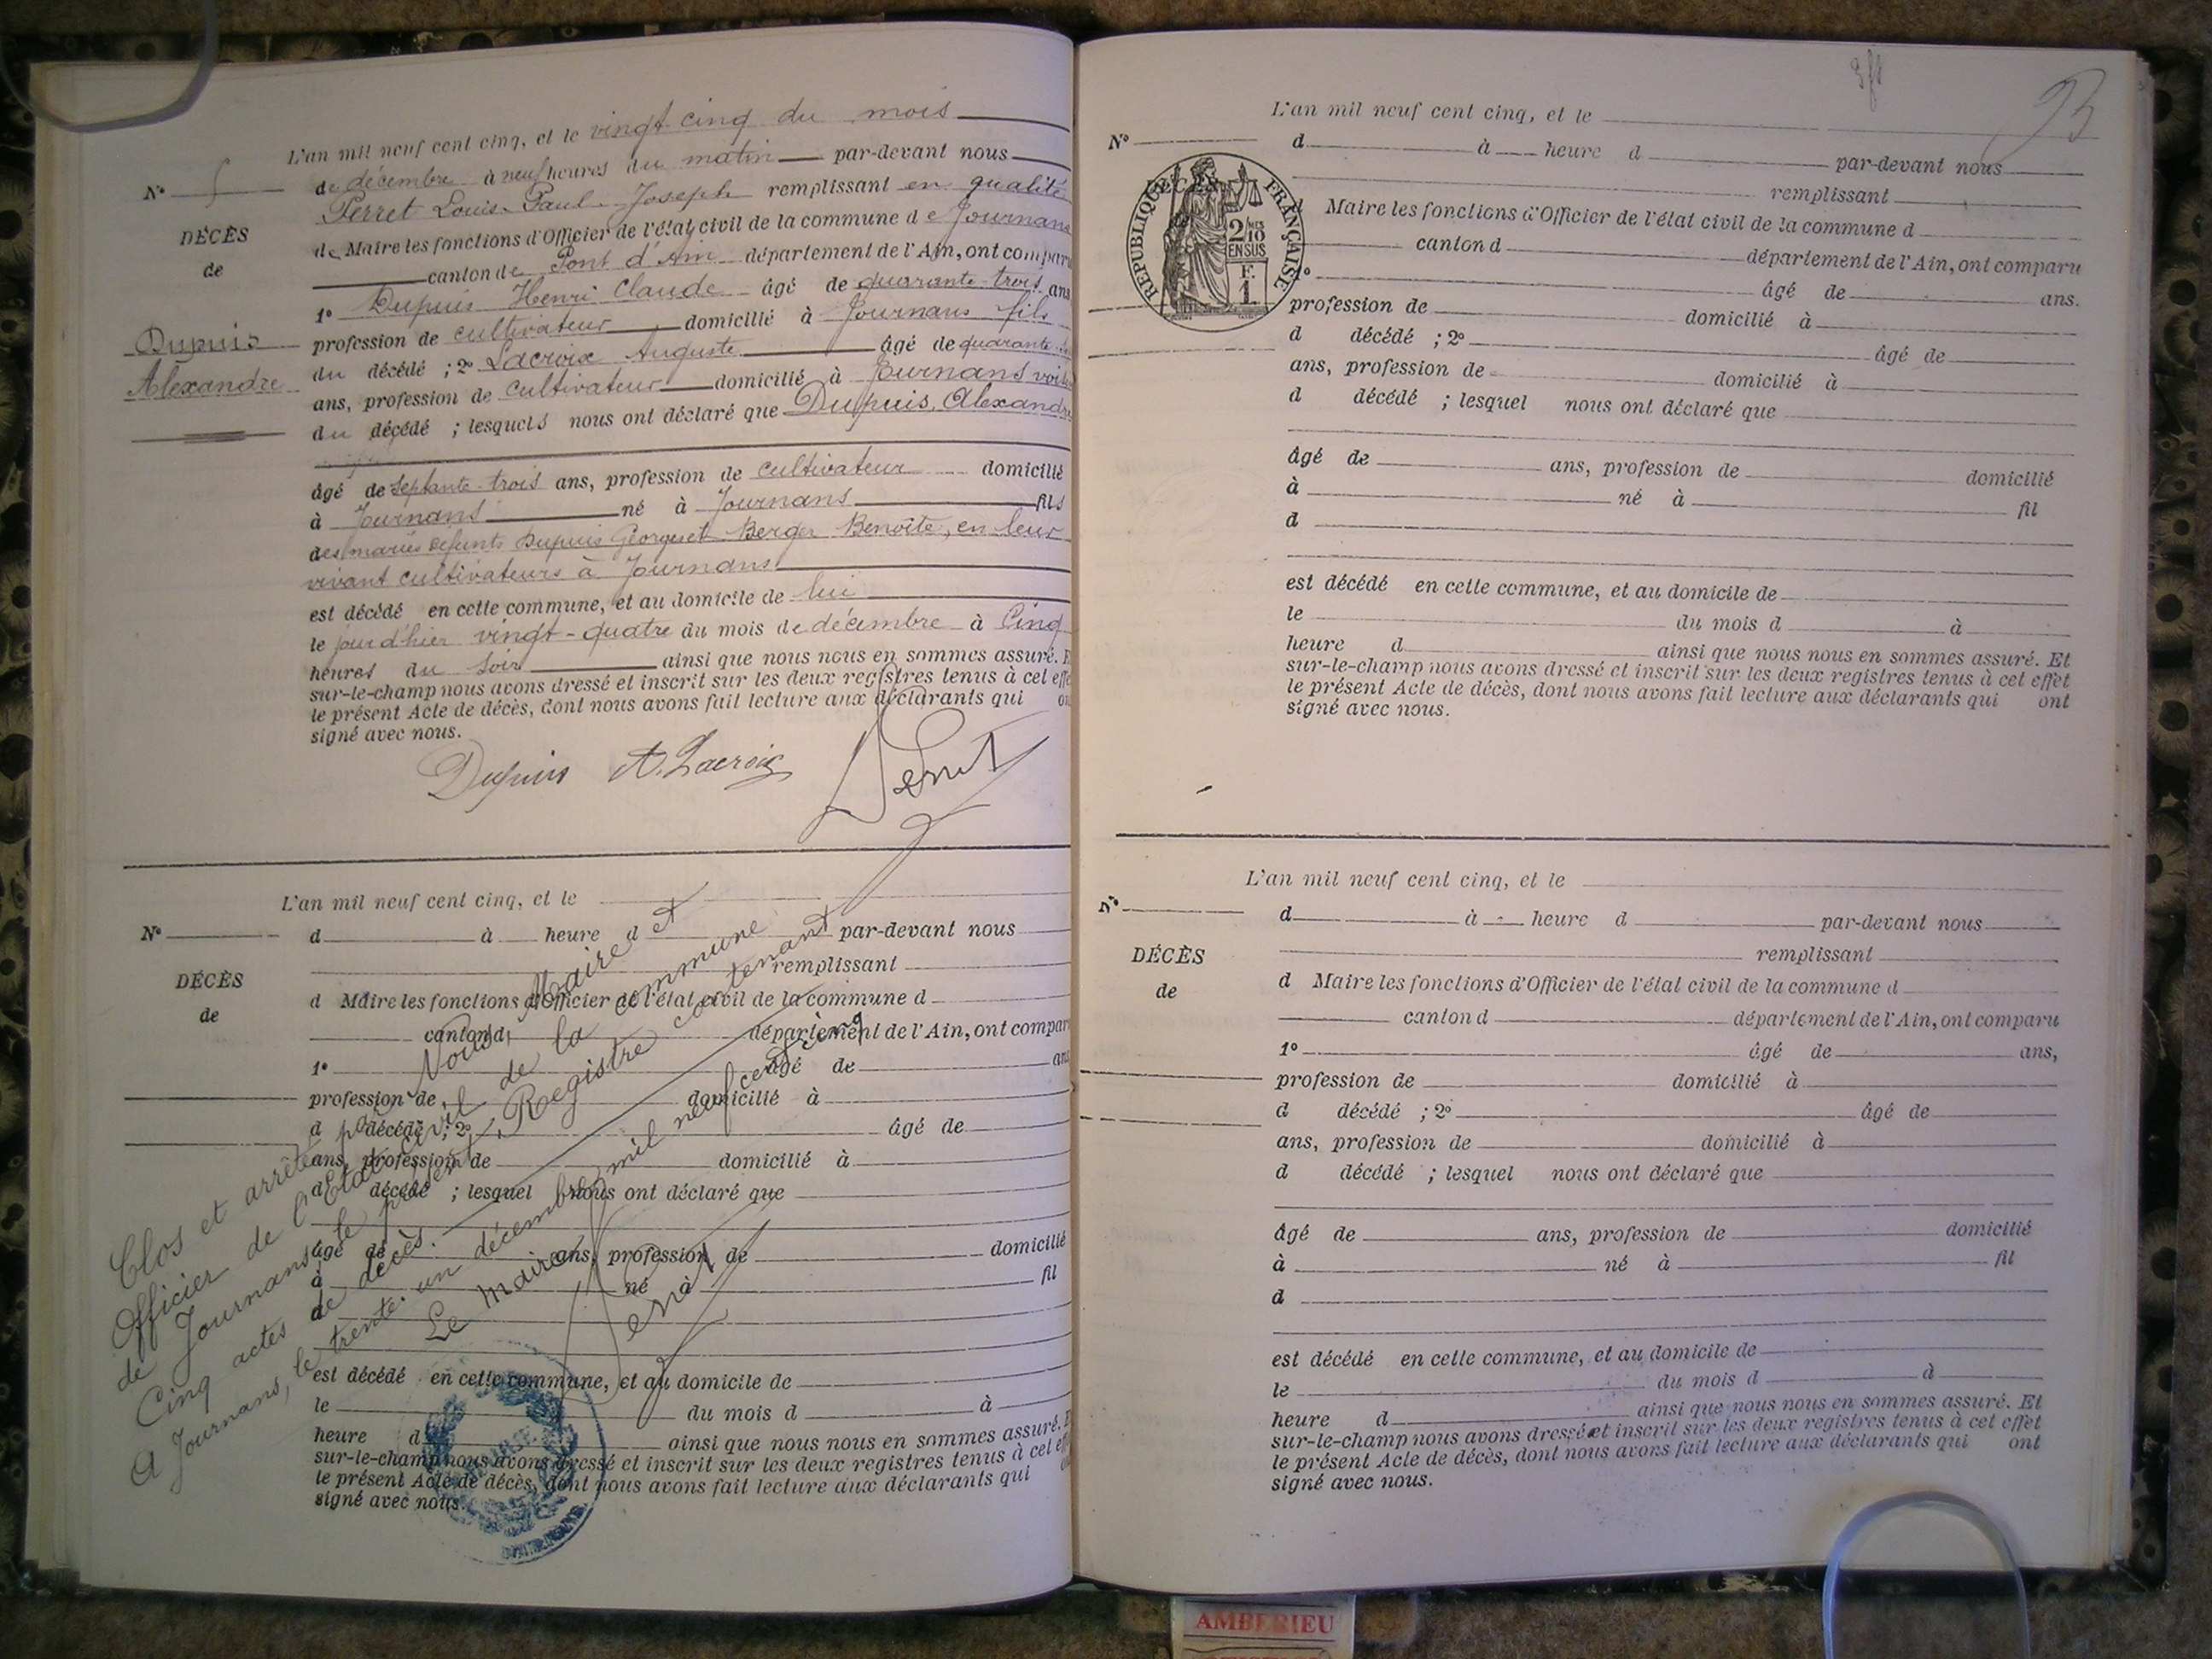 L'an mil neuf cent cinq, et le vingt cinq du mois
N° 5 de décembre à neuf heures du matin par-devant nous
Perret Louis Paul Joseph remplissant en qualité
DÉCÈS
de
de Maire les fonctions d'Officier de l'état civil de la commune de Journans
canton de Pont d'Ain département de l'Ain, ont comparu
1° Dupuis Henri Claude âgé de quarante-trois ans
Dupuis
Alexandre
profession de cultivateur domicilié à Journans fils
du décédé ; 2° Lacroix Auguste âgé de quarante
ans, profession de cultivateur domicilié à Journans voisin
du décédé ; lesquels nous ont déclaré que Dupuis, Alexandre
âgé de septante-trois ans, profession de cultivateur domicilié
à Journans né à Journans fils
des mariés défunts Dupuis Georges et Berger Benoîte, en leur
vivant cultivateurs à Journans
est décédé en cette commune, et au domicile de lui
le jour d'hier vingt-quatre du mois de décembre à Cinq
heures du soir ainsi que nous nous en sommes assuré. E
sur-le-champ nous avons dressé et inscrit sur les deux registres tenus à cet effe
le présent Acte de décès, dont nous avons fait lecture aux déclarants qui on
signé avec nous.
Dupuis A. Lacroix Perret
L'an mil neuf cent cinq, et le
N° d à heure d par-devant nous
remplissant
DÉCÈS
de
d Maire les fonctions d'Officier de l'état civil de la commune d
canton d département de l'Ain, ont compar
1° âgé de ans
profession de domicilié à
d décédé ; 2° âgé de
ans, profession de domicilié à
d décédé ; lesquel nous ont déclaré que
âgé de ans, profession de domicilié
à né à fil
d
est décédé en cette commune, et au domicile de
le du mois d à
heure d ainsi que nous nous en sommes assuré. E
sur-le-champ nous avons dressé et inscrit sur les deux registres tenus à cet eff
le présent Acte de décès, dont nous avons fait lecture aux déclarants qui on
signé avec nous.
Clos et arrêté par Nous, Maire et
Officier de l'Etat Civil de la commune
de Journans, le présent Registre contenant
Cinq actes de décès.
A Journans, le trente-un décembre mil neuf cent cinq
Le Maire
Perret
93
L'an mil neuf cent cinq, et le
N° d à heure d par-devant nous
remplissant
RÉPUBLIQUE FRANÇAISE
2/10
EN SUS
F.
1
Maire les fonctions d'Officier de l'état civil de la commune d
canton d département de l'Ain, ont comparu
1° âgé de ans.
profession de domicilié à
d décédé ; 2° âgé de
ans, profession de domicilié à
d décédé ; lesquel nous ont déclaré que
âgé de ans, profession de domicilié
à né à fil
d
est décédé en cette commune, et au domicile de
le du mois d à
heure d ainsi que nous nous en sommes assuré. Et
sur-le-champ nous avons dressé et inscrit sur les deux registres tenus à cet effet
le présent Acte de décès, dont nous avons fait lecture aux déclarants qui ont
signé avec nous.
L'an mil neuf cent cinq, et le
N° d à heure d par-devant nous
remplissant
DÉCÈS
de
d Maire les fonctions d'Officier de l'état civil de la commune d
canton d département de l'Ain, ont comparu
1° âgé de ans,
profession de domicilié à
d décédé ; 2° âgé de
ans, profession de domicilié à
d décédé ; lesquel nous ont déclaré que
âgé de ans, profession de domicilié
à né à fil
d
est décédé en cette commune, et au domicile de
le du mois d à
heure d ainsi que nous nous en sommes assuré. Et
sur-le-champ nous avons dressé et inscrit sur les deux registres tenus à cet effet
le présent Acte de décès, dont nous avons fait lecture aux déclarants qui ont
signé avec nous.
AMBERIEU